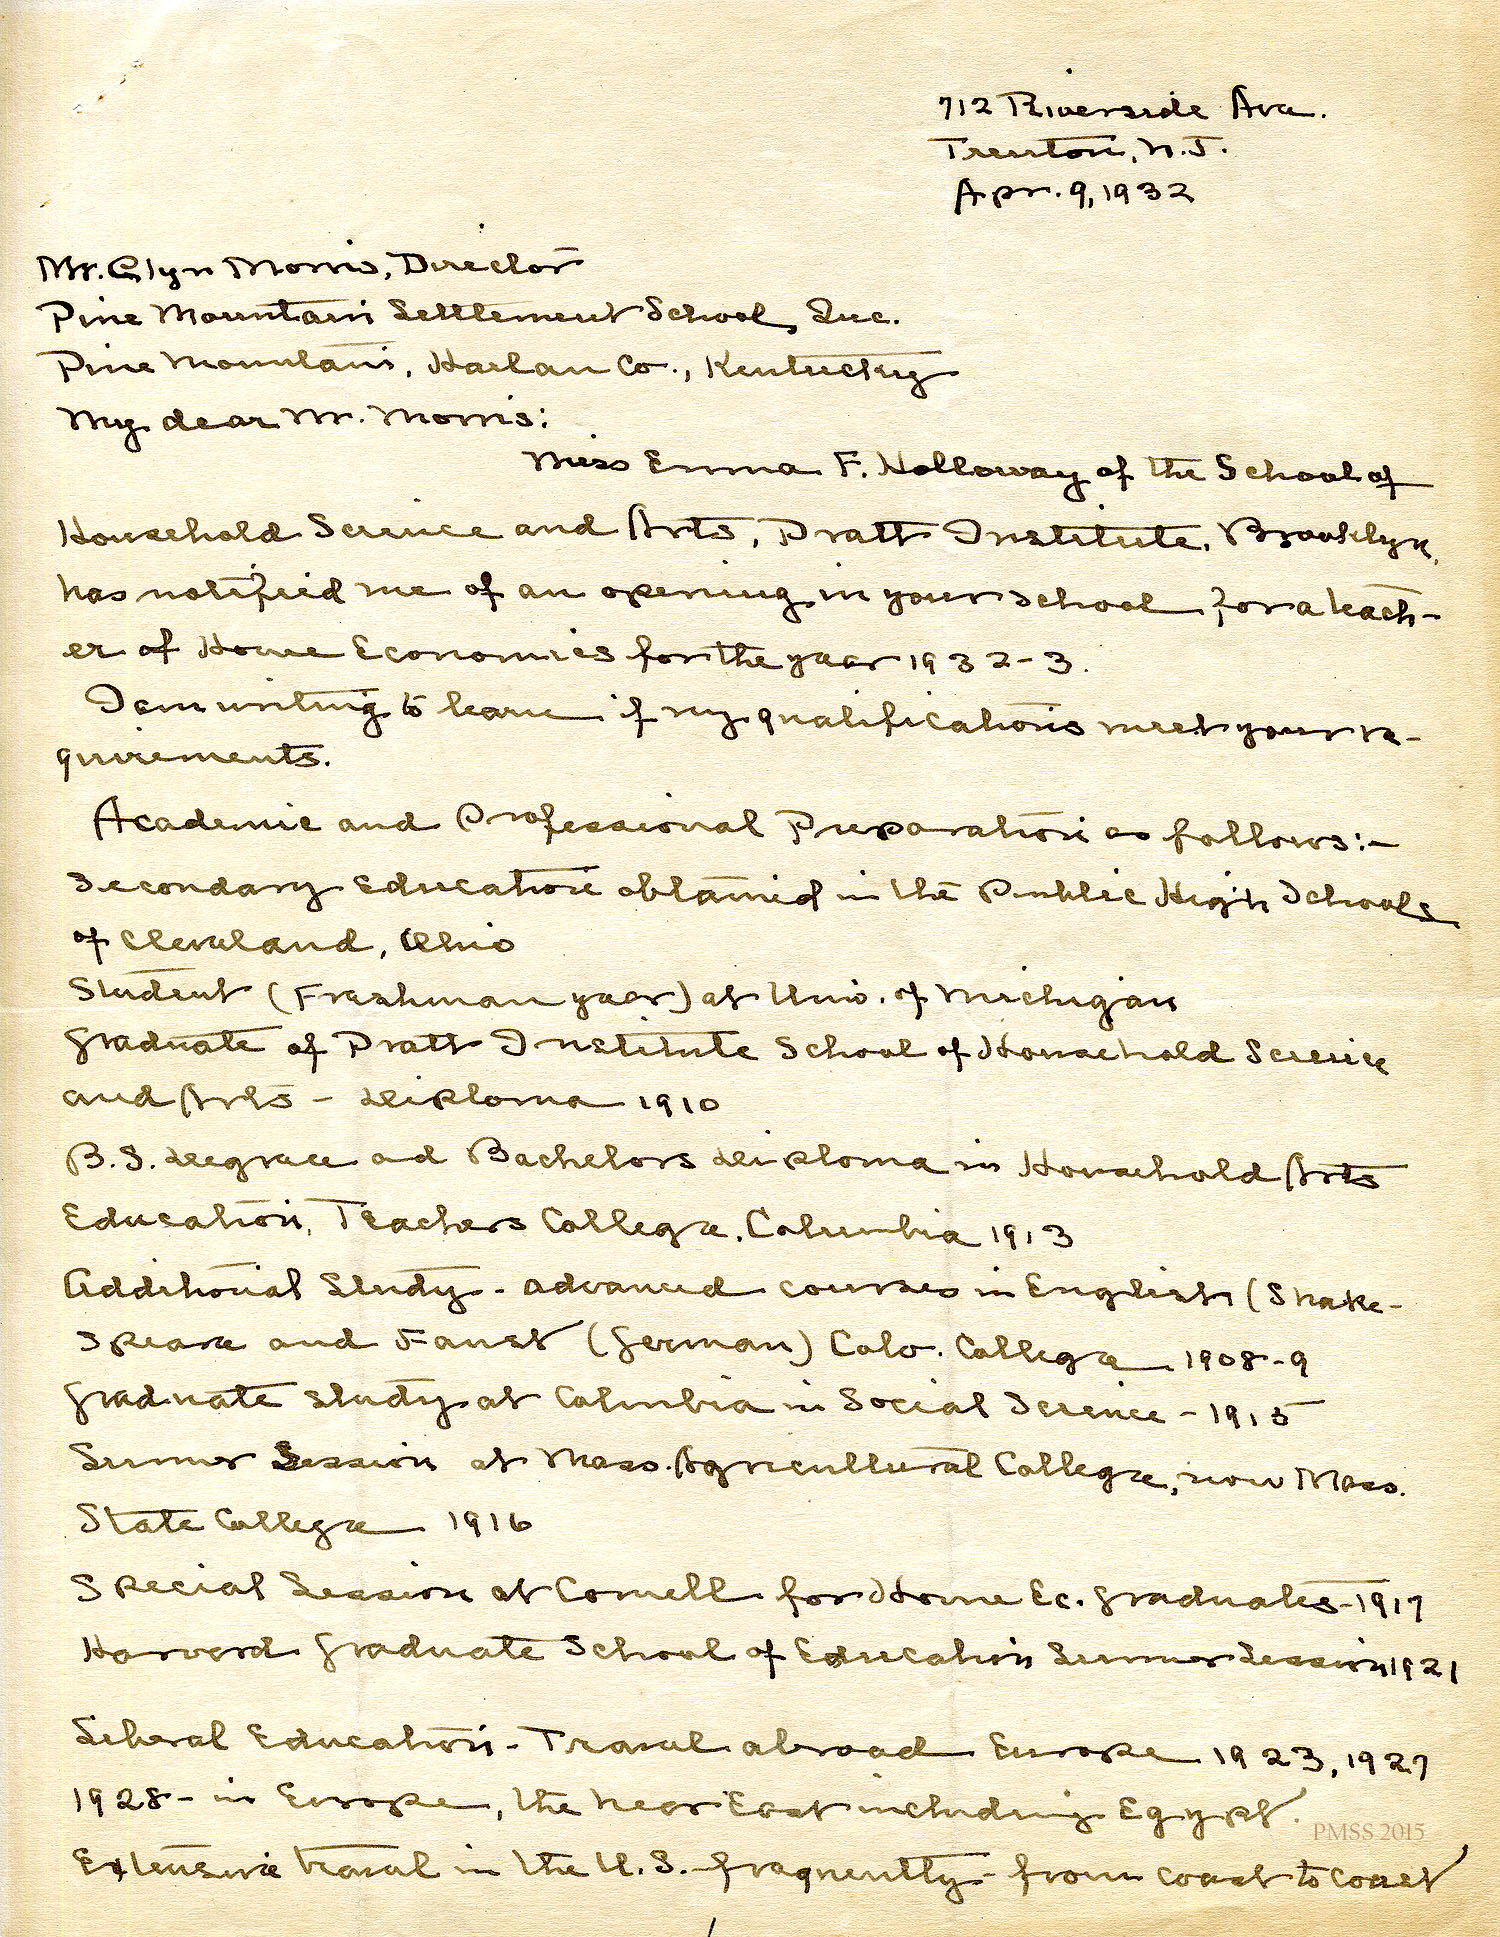 712 Riverside Ave.
Trenton, N.J.
Apr. 9, 1932
Mr. Glyn Morris, Director
Pine Mountain Settlement School, Inc.
Pine Mountain, Harlan Co., Kentucky
My dear Mr. Morris:
Miss Emma F. Holloway of the School of
Household Science and Arts, Pratt Institute, Brooklyn,
has notified me of an opening in your school for a teach-
er of Home Economics for the year 1932-3.
I am writing to learn if my qualifications meet your re-
quirements.
Academic and Professional Preparation as follows:-
Secondary education obtained in the Public High Schools
of Cleveland, Ohio
Student (Freshman year) at Univ. of Michigan
Graduate of Pratt Institute School of Household Science
and Arts - diploma 1910
B.S. degree and Bachelors diploma in Household Arts
Education, Teachers College, Columbia 1913
Additional Study - advanced courses in English (Shake-
speare and Faust (German) Colo. College 1908-9
Graduate study at Columbia in Social Science - 1915
Summer Session at Mass. Agricultural College, now Mass.
State College 1916
Special Session at Cornell for Home Ec. graduates - 1917
Harvard Graduate School of Education Summer Session 1921
Liberal Education - Travel abroad Europe 1923, 1927
1928 - in Europe, the Near East including Egypt.
PMSS 2015
Extensive travel in the U.S. - frequently - from coast to coast